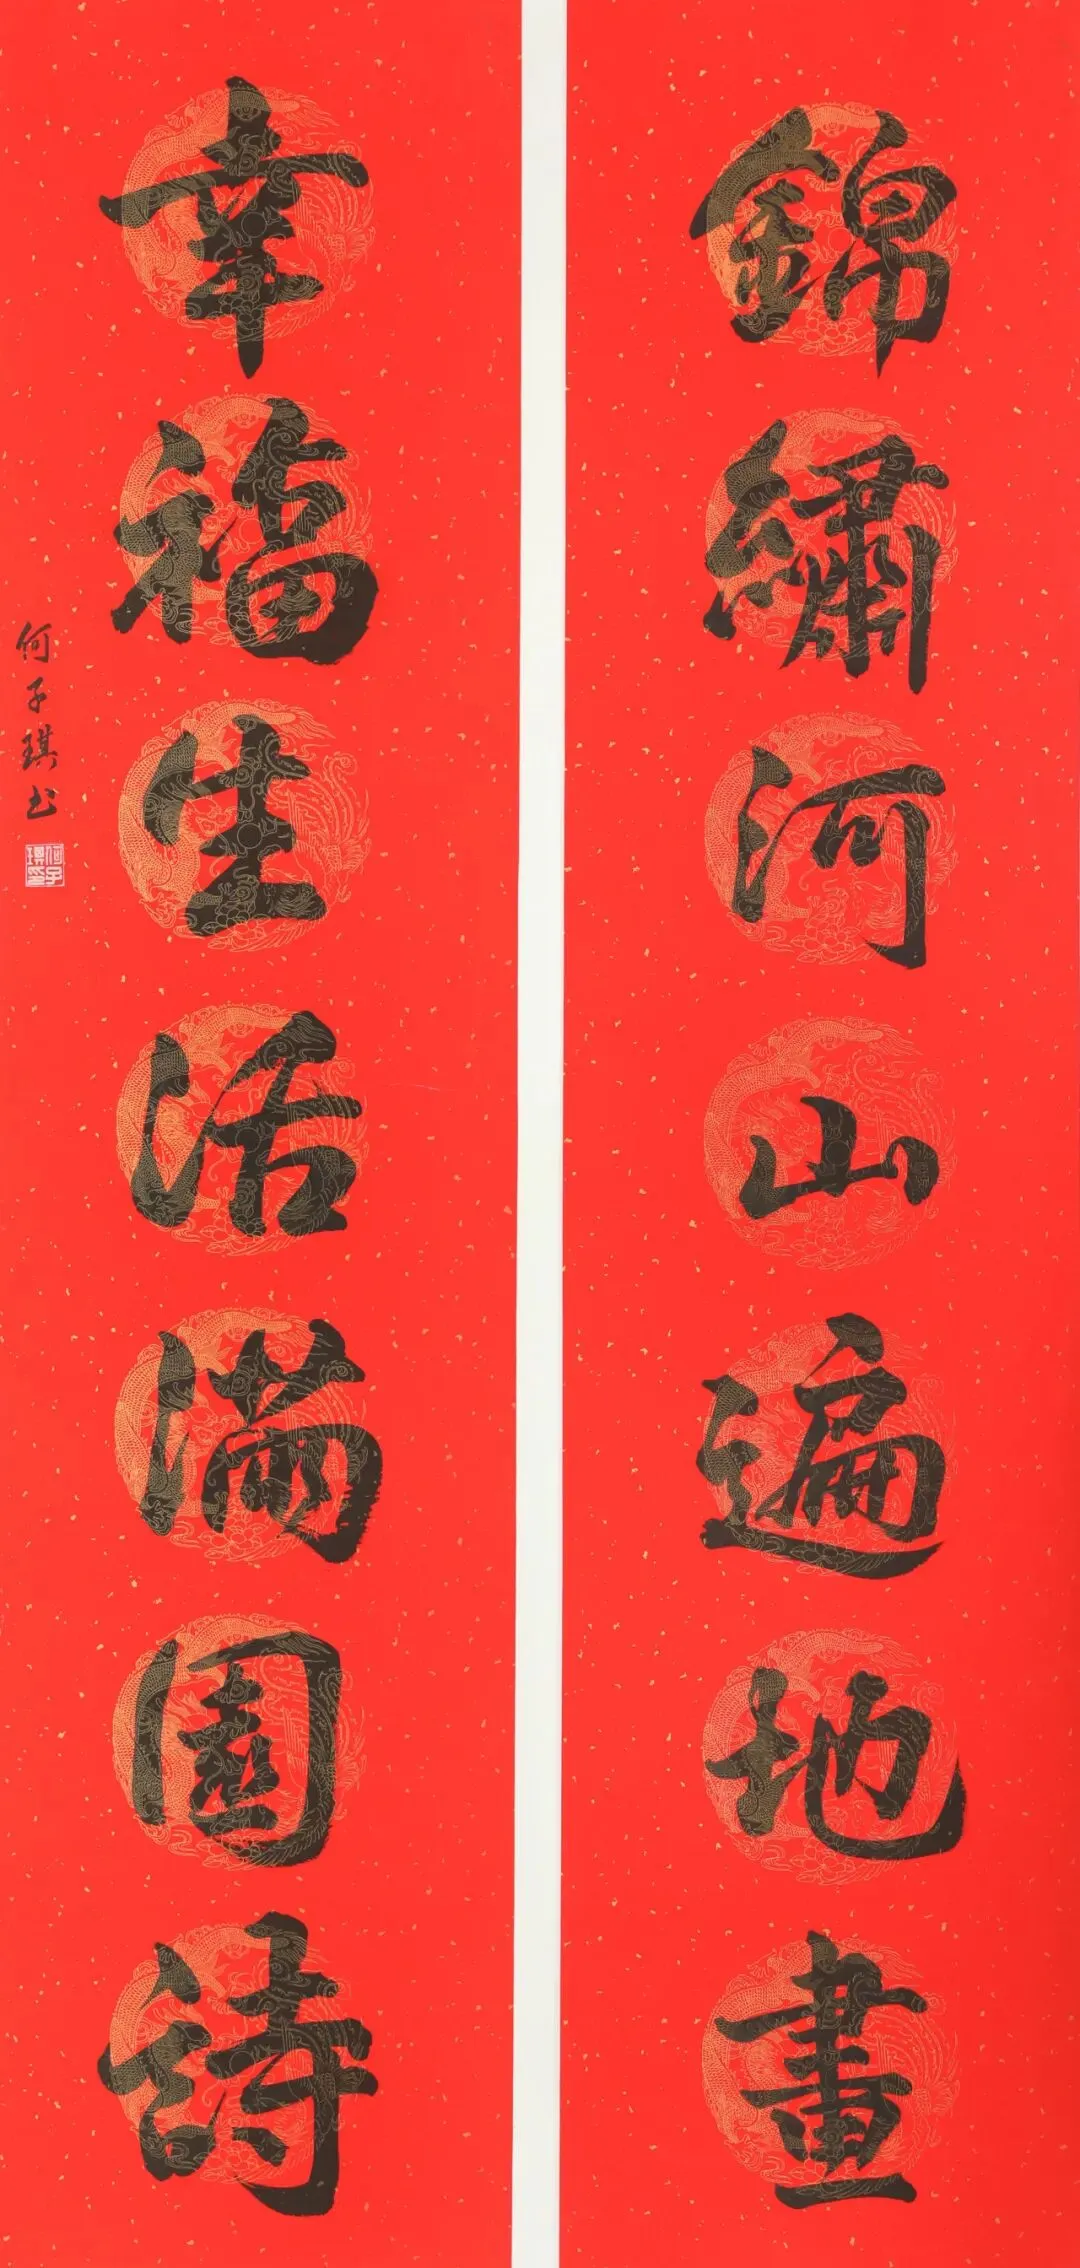 錦繡河山遍地畫
幸福生活滿園詩
何子琪书
何子琪印